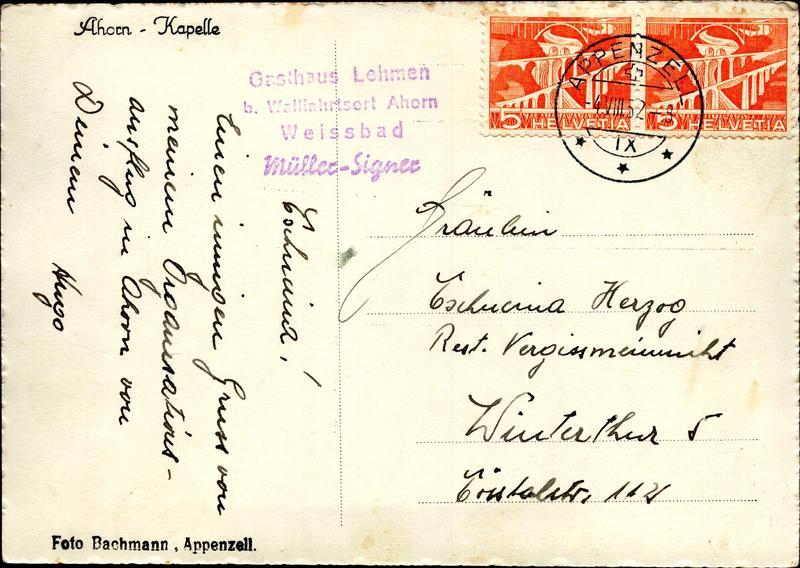 Ahorn - Kapelle
Gasthaus Lehmen
b. Wallfahrtsort Ahorn
Weissbad
Müller-Signer
5 HELVETIA
5 HELVETIA
APPENZELL
-4.VIII.52.-8
IX
!
Einen innigen Gruss von
meinem Organisations-
ausflug in Ahorn von
Deinem
Hugo
Fräulein
Herzog
Rest. Vergissmeinnicht
Winterthur 5
112
Foto Bachmann, Appenzell.